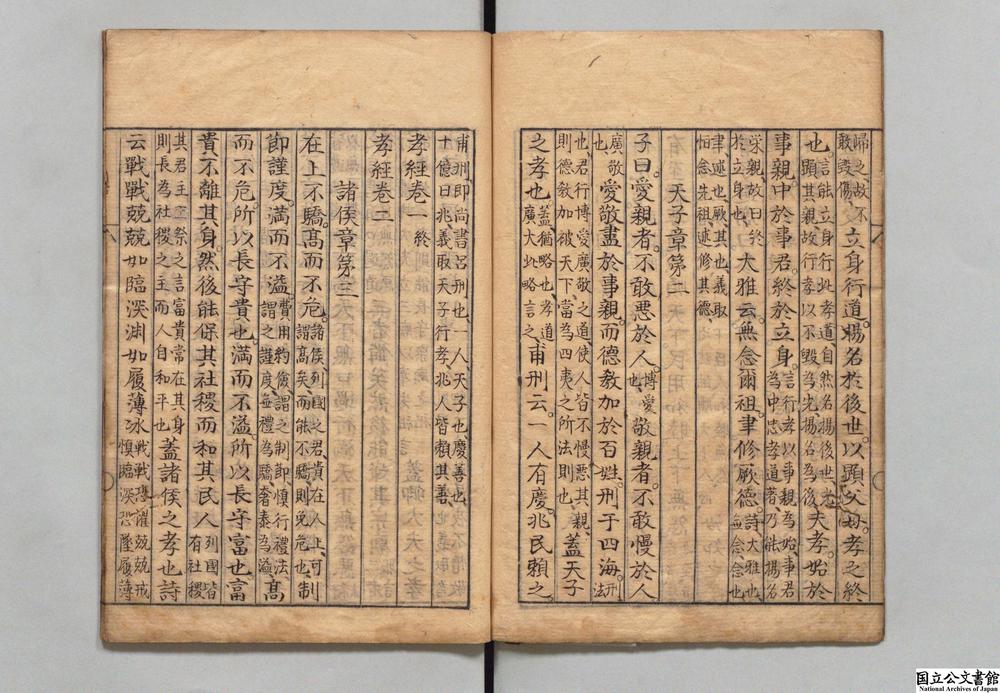 歸之故不敢毀傷立身行道揚名於後世以顯父母孝之終
也言能立身行此孝道自然名揚後世光顯其親故行孝以不毀為先揚名為後夫孝始於
事親中於事君終於立身言行孝以事親為始事君為中忠孝道著乃能揚名
榮親故曰終於立身也大雅云無念爾祖聿修厥德詩大雅也無念念也
聿述也厥其也義取恒念先祖述修其德
天子章第二
子曰愛親者不敢惡於人博愛也敬親者不敢慢於人
廣敬也愛敬盡於事親而德教加於百姓刑于四海刑法
也君行博愛廣敬之道使人皆不慢惡其親則德教加被天下當為四夷之所法則也蓋天子
之孝也蓋猶略也孝道廣大此略言之甫刑云一人有慶兆民賴之
甫刑即尚書呂刑也一人天子也慶善也十億曰兆義取天子行孝兆人皆賴其善
孝經卷一終
孝經卷二
諸侯章第三
在上不驕高而不危諸侯列國之君貴在人上可謂高矣而能不驕則免危也制
節謹度滿而不溢費用約儉謂之制節慎行禮法謂之謹度無禮為驕奢泰為溢高
而不危所以長守貴也滿而不溢所以長守富也富
貴不離其身然後能保其社稷而和其民人列國皆有社稷
其君主而祭之言富貴常在其身則長為社稷之主而人自和平也蓋諸侯之孝也詩
云戰戰兢兢如臨深淵如履薄冰戰戰恐懼兢兢戒慎臨深恐墜履薄
国立公文書館
National Archives of Japan